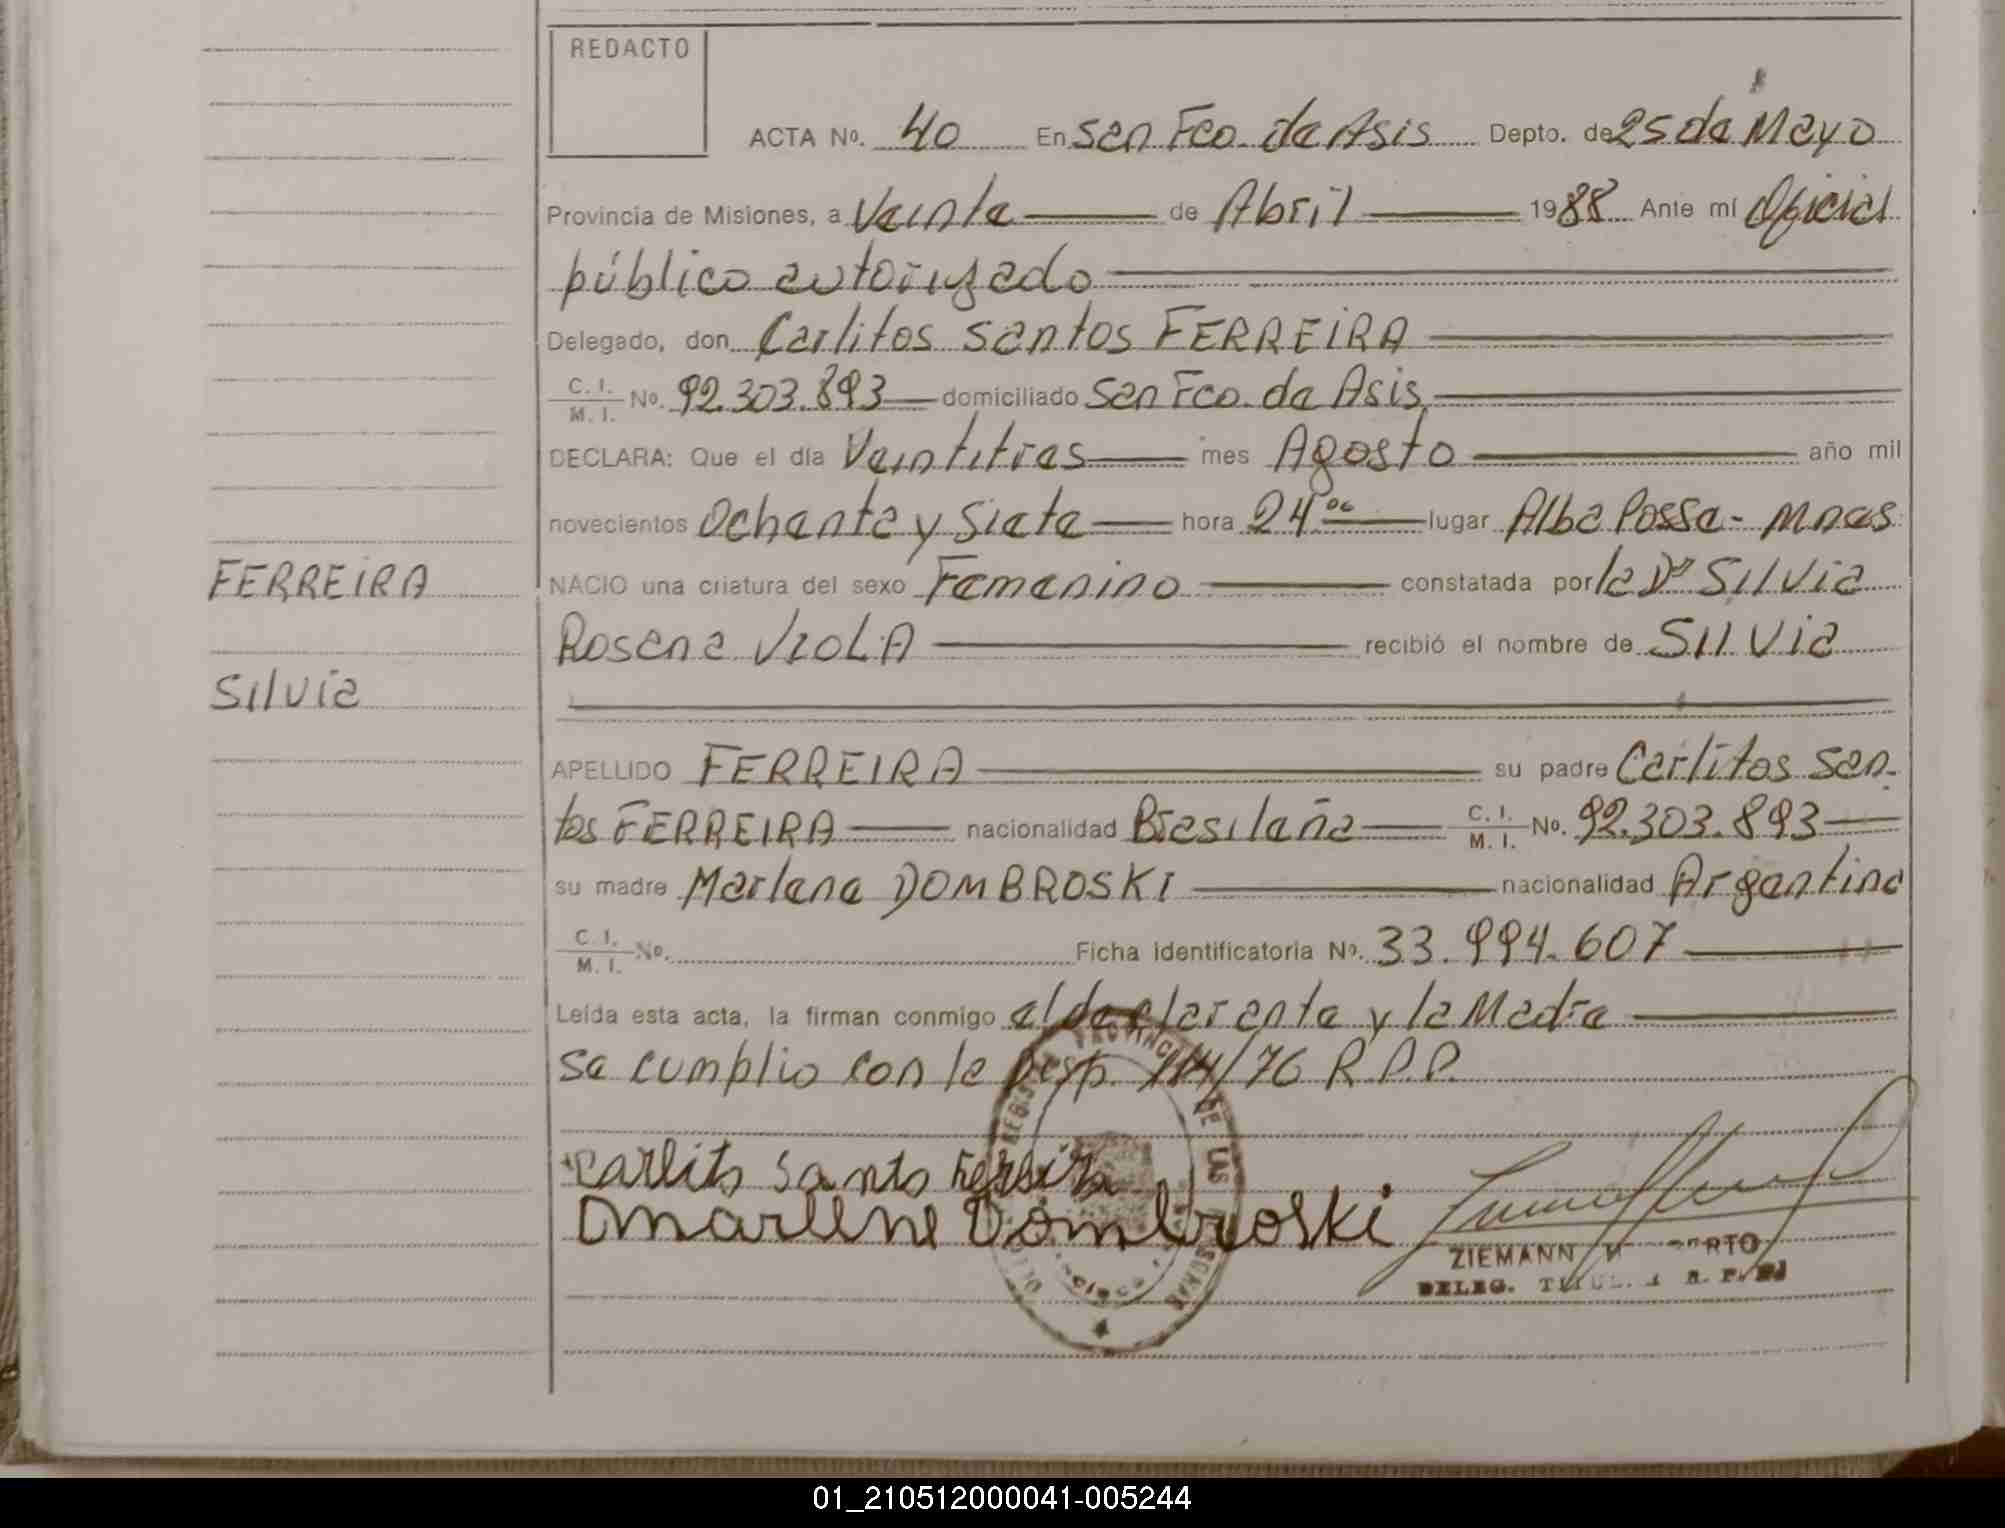 REDACTO
ACTA Nº. 40 En San Fco. de Asis Depto. de 25 de Mayo
Provincia de Misiones, a Veinte de Abril 1988 Ante mí Oficial
público autorizado
Delegado, don Carlitos Santos FERREIRA
C. I. / M. I. Nº. 92.303.893 domiciliado San Fco. de Asis
DECLARA: Que el día Veintitres mes Agosto año mil
novecientos Ochenta y Siete hora 24 00 lugar Alba Posse - Mnes
FERREIRA NACIO una criatura del sexo Femenino constatada por la Dra Silvia
Rosana VIOLA recibió el nombre de Silvia
Silvia
APELLIDO FERREIRA su padre Carlitos San-
tos FERREIRA nacionalidad Brasileña C. I. / M. I. Nº. 92.303.893
su madre Marlene DOMBROSKI nacionalidad Argentina
C. I. / M. I. Nº. Ficha identificatoria Nº. 33.994.607
Leída esta acta, la firman conmigo el declarante y la Madre
se cumplio con la Disp. 114/76 R.P.P.
Carlito Santo Ferreira
Marlene Dombroski
ZIEMANN
DELEG.
REGIS PROVINCIA DE LAS PERSONAS
01_210512000041-005244